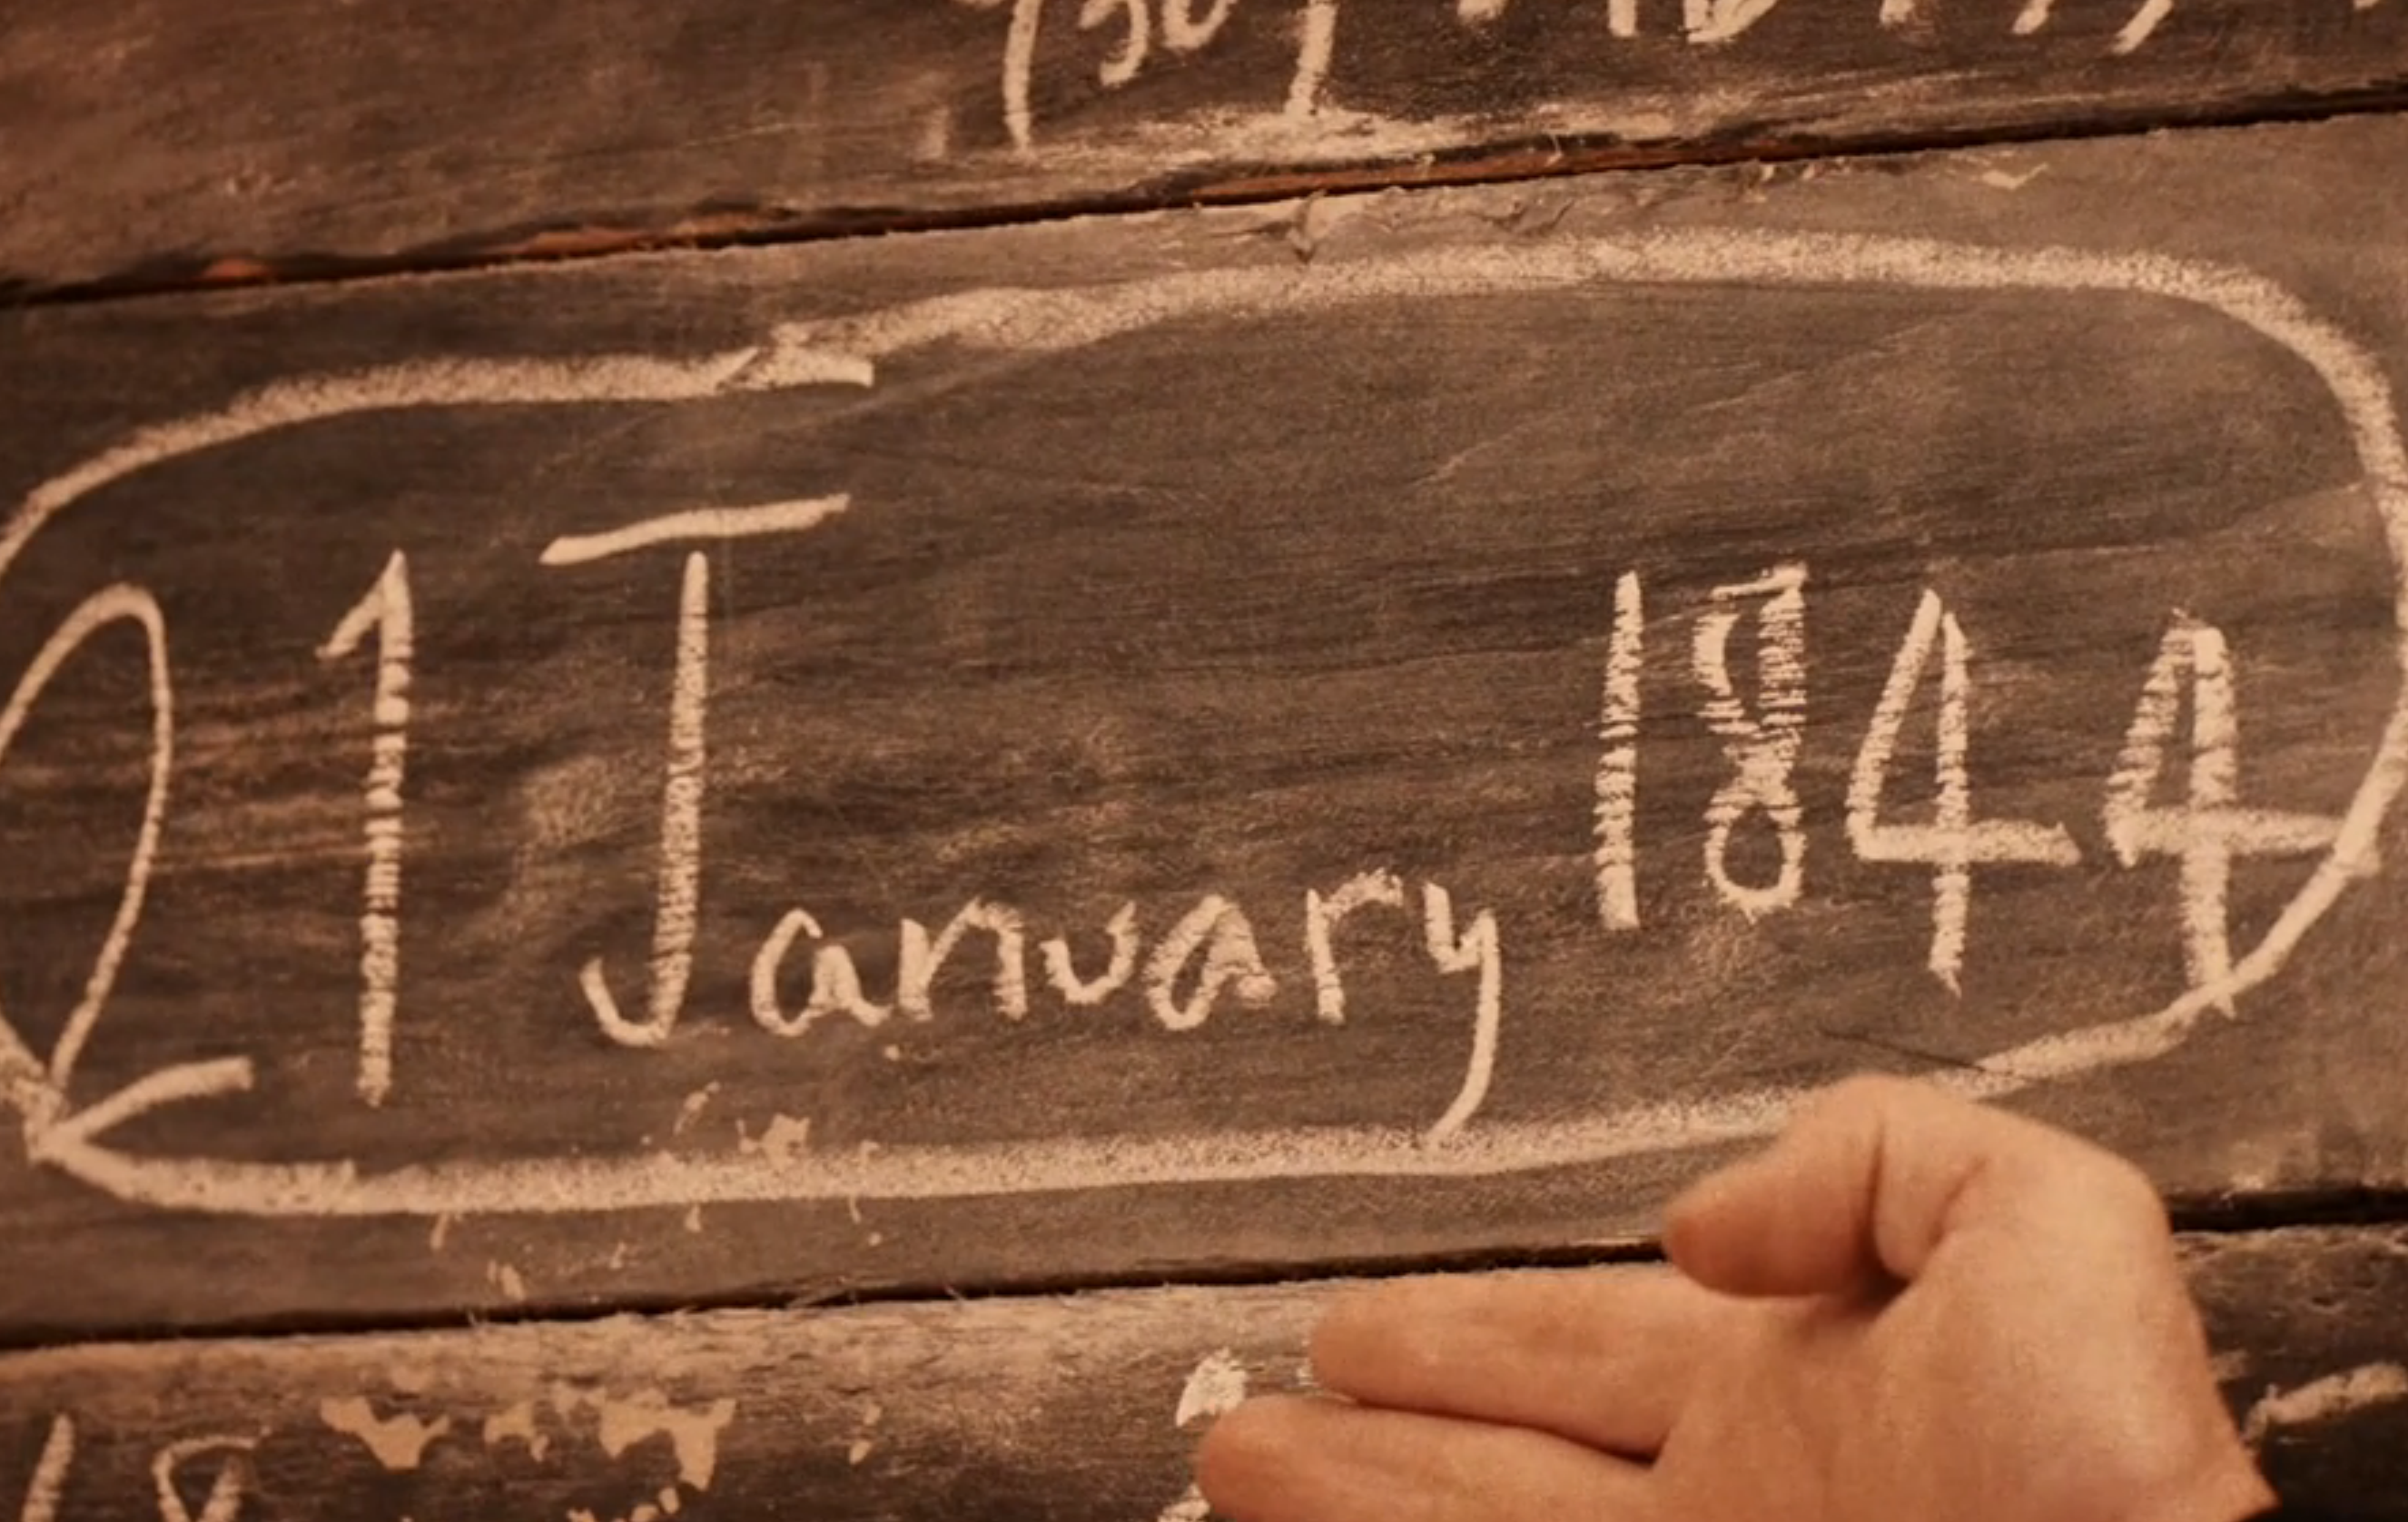 21 January 1844
18